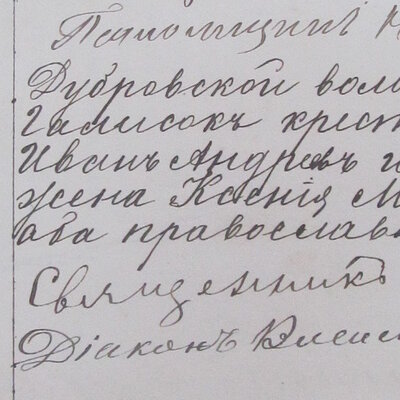 Дубровской воло
Галисокъ крест
Иванъ Андреевъ и
жена Ксенія М
оба православн
Священникъ
Діаконъ